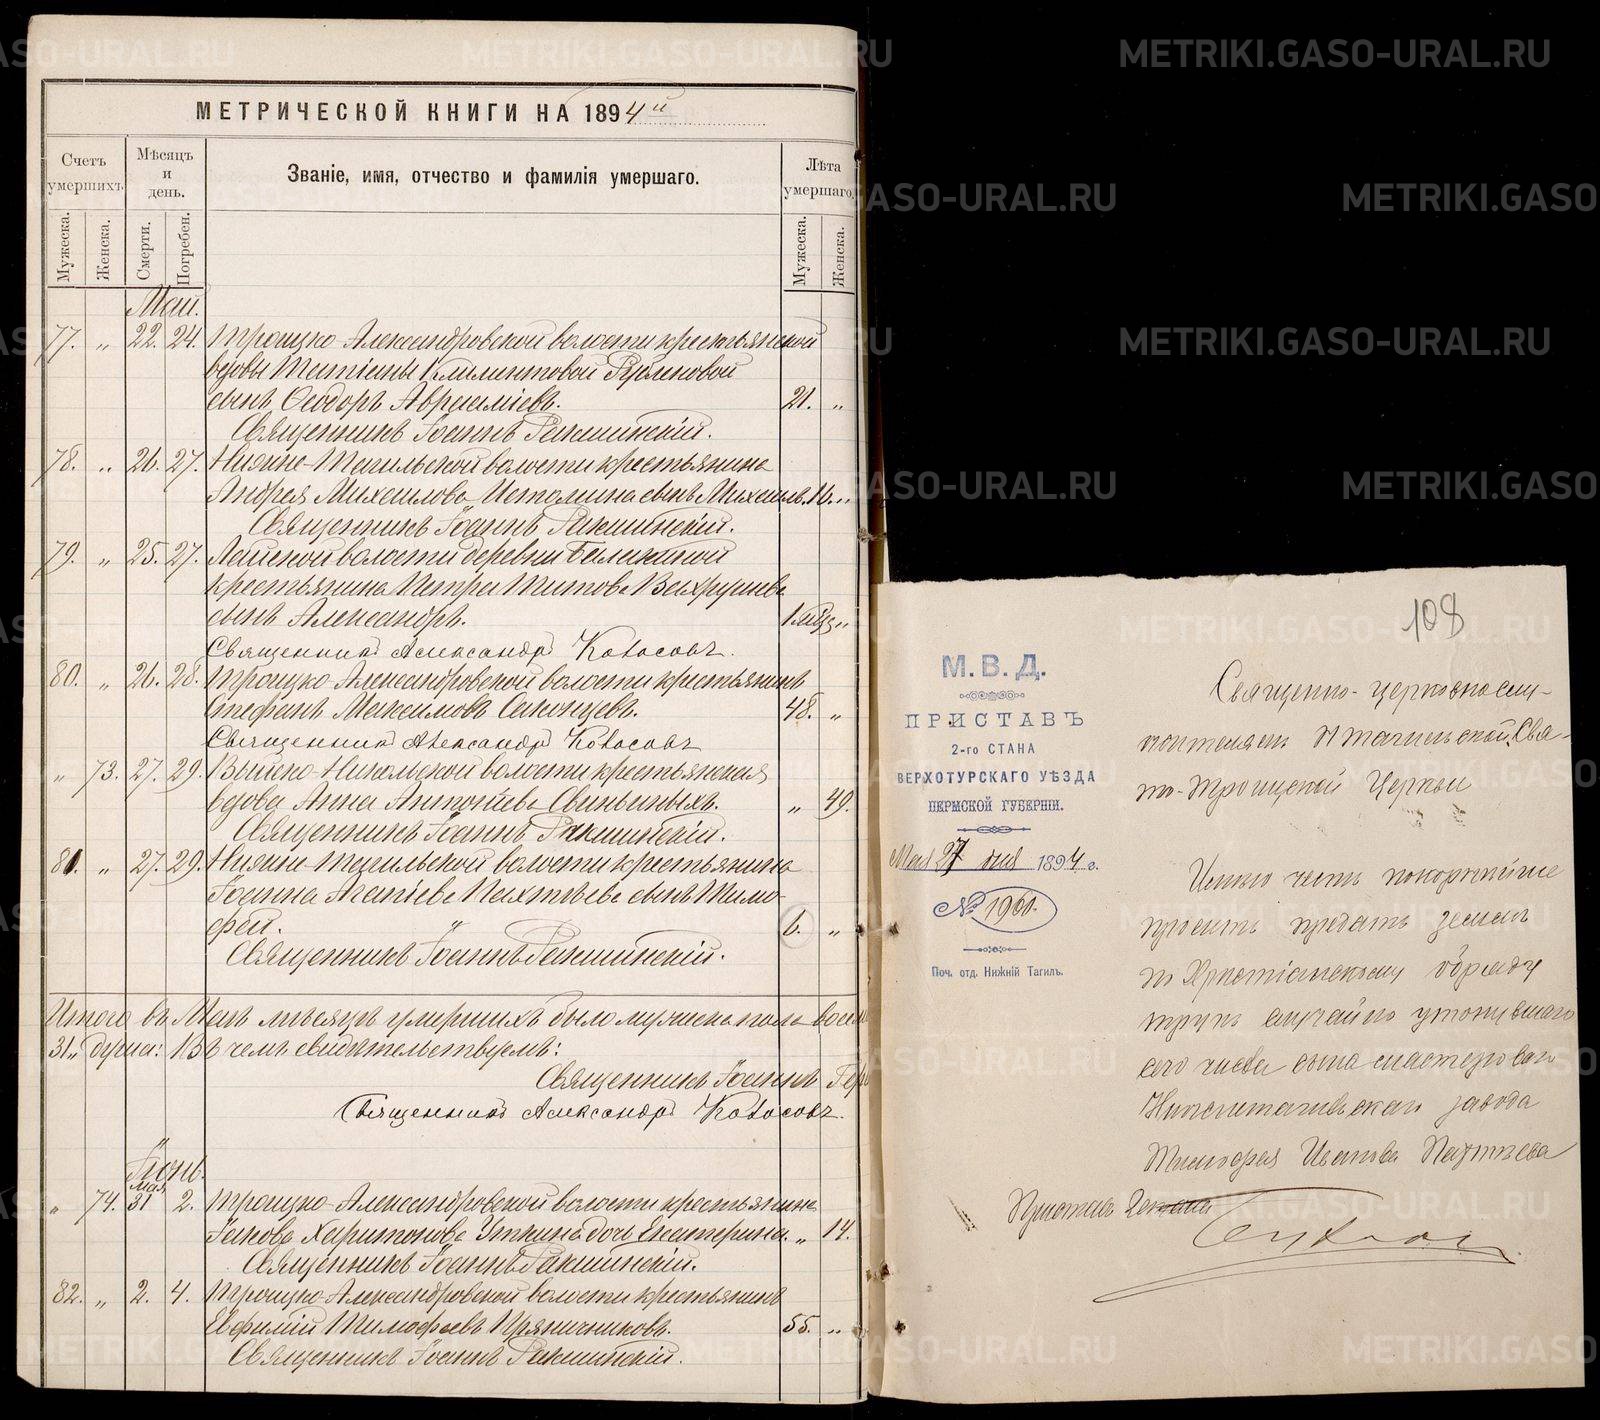 МЕТРИЧЕСКОЙ КНИГИ НА 1894 й
Счетъ умершихъ
Мужеска.
Женска.
Мѣсяцъ и день.
Смерти.
Погребен.
Званіе, имя, отчество и фамилія умершаго.
Лѣта умершаго
Мужеска.
Женска.
Май.
77. „ 22. 24. Троицко-Александровской волости крестьянской
вдовы Татіаны Климентовой
сынъ Ѳеодоръ Авраамиевъ. 21. „
Священникъ Іоаннъ
78. „ 26. 27. Нижне-Тагильской волости крестьянина
Андрея Михаилова Истомина сынъ Михаилъ.
Священникъ Іоаннъ
79. „ 25. 27. Лайской волости деревни
крестьянина Петра Титова Вахрушева
сынъ Александръ.
Священникъ Александръ
80. „ 26. 28. Троицко-Александровской волости крестьянинъ
Стефанъ Максимовъ 48. „
Священникъ Александръ
„ 73. 27. 29. Выйско-Никольской волости крестьянская
вдова Анна Антонова Свиньиныхъ. „ 49.
Священникъ Іоаннъ
81. „ 27. 29. Нижне-Тагильской волости крестьянина
Іоанна Агапіева Пахтѣева сынъ Тимо-
фей. 6. „
Священникъ Іоаннъ
Итого въ Маѣ мѣсяцѣ умершихъ было мужеска пола
31 „ душа: Въ чемъ свидѣтельствуемъ:
Священникъ Іоаннъ
Священникъ Александръ
Іюнь.
мая
„ 74. 31 2. Троицко-Александровской волости крестьянина
Іакова Харитонова Уткина дочь Екатерина. „ 14.
Священникъ Іоаннъ
82. „ 2. 4. Троицко-Александровской волости крестьянинъ
Евфимій Тимофеевъ Пряничниковъ. 55. „
Священникъ Іоаннъ
108
М. В. Д.
ПРИСТАВЪ
2-го СТАНА
ВЕРХОТУРСКАГО УѢЗДА
ПЕРМСКОЙ ГУБЕРНІИ.
Мая 27 дня 1894 г.
№ 1960.
Поч. отд. Нижній Тагилъ.
Священно-церковнослу-
жителямъ Н Тагильской Свя-
то-Троицкой Церкви
Имѣю честь покорнѣйше
просить предать землѣ
по Христіанскому обряду
трупъ случайно утонувшаго
сего числа сына мастероваго
Нижнетагильскаго завода
Тимофея Иванова Пахтѣева
Приставъ 2 стана
METRIKI.GASO-URAL.RU